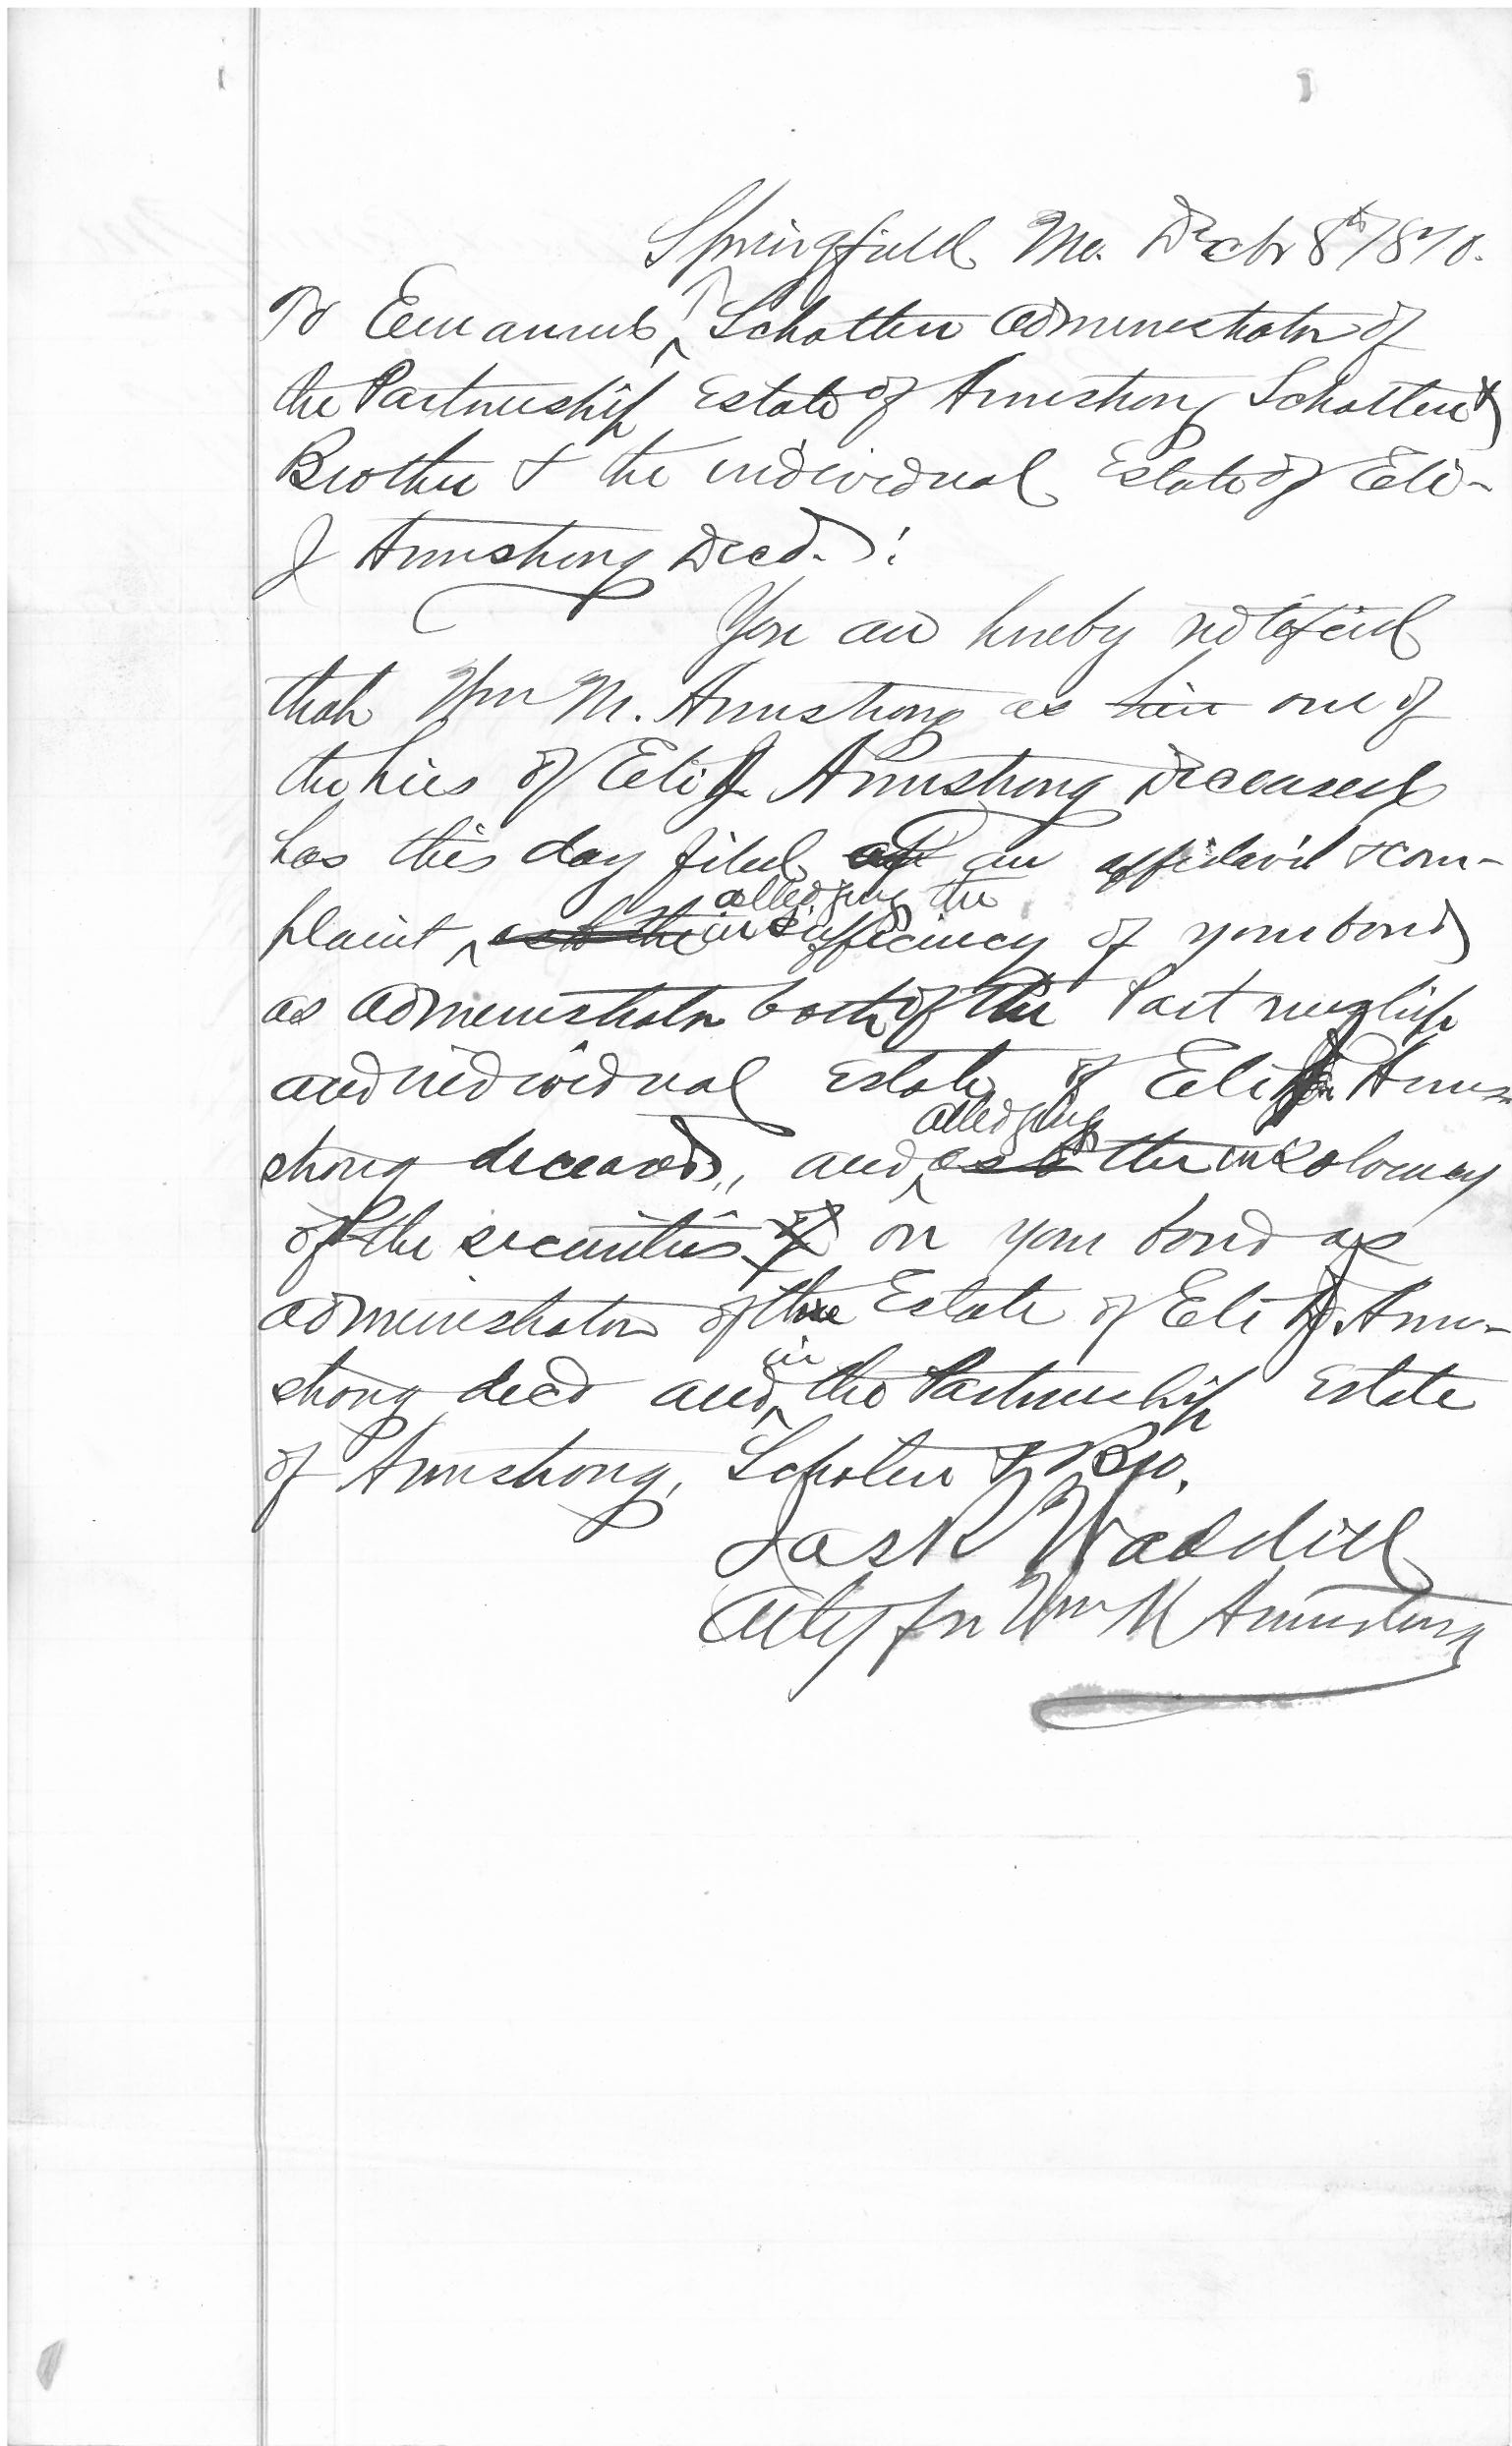 Springfield Mo. Decbr 8th 1870.
To Emanuel Schotten administrator of
the Partnership Estate of Armstrong Schotten &
Brother & the individual Estate of Eli-
J Armstrong Decd.:
You are hereby notified
that Wm M. Armstrong as heir one of
the hiers of Eli J. Armstrong Deceased
has this day filed an affidavit & com-
plaint alledging the insufficiency of your bond
as administrator both of the Partnership
and individual Estate of Eli J. Arm-
strong deceased, and alledging the insolvency
of the securities of on your bond as
administrator of the Estate of Eli J. Arm-
strong decd and in the Partnership Estate
of Armstrong, Schoten & Bro.
Jas R Waddill
Atty for Wm M Armstrong